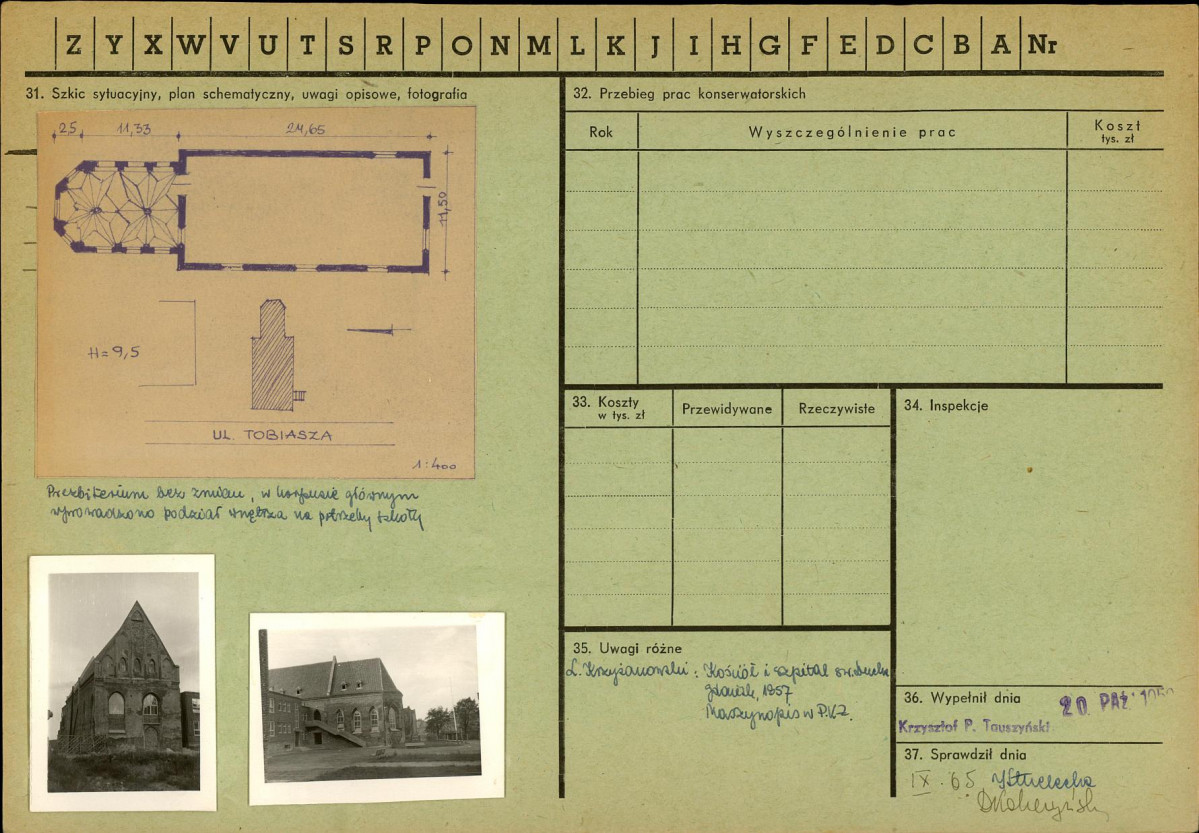 Z Y X W V U T S R P O N M L K J I H G F E D C B A Nr
31. Szkic sytuacyjny, plan schematyczny, uwagi opisowe, fotografia
25 11,33 24,65
11,50
H = 9,5
UL. TOBIASZA
1:400
Prezbiterium bez zmian, w korpusie głównym
wprowadzono podział wnętrza na potrzeby szkoły
32. Przebieg prac konserwatorskich
Rok Wyszczególnienie prac Koszt
tys. zł
33. Koszty
w tys. zł
Przewidywane Rzeczywiste
34. Inspekcje
35. Uwagi różne
L. Krzyżanowski: Kościół i szpital św. Ducha
Gdańsk, 1957
Maszynopis w P.K.Z.
36. Wypełnił dnia 20. PAŹ.
Krzysztof P. Tauszyński
37. Sprawdził dnia
IX. 65